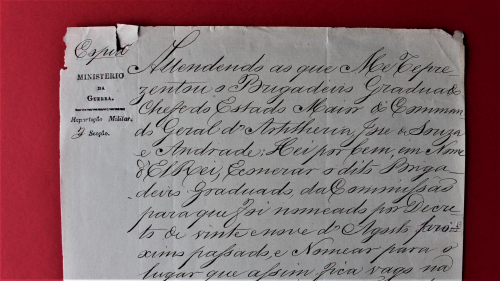 Copia
MINISTERIO
DA
GUERRA.
Repartição Militar.
Secção.
Attendendo ao que Me repre-
zentou o Brigadeiro Graduado
Chefe do Estado Maior do Comman
do Geral d'Artilheria, José de Souza
e Andrade: Hei por bem, em Nome
d'El Rei, Exonerar o dito Briga-
deiro Graduado, da Commissão
para que foi nomeado por Decre-
to de vinte e nove d'Agosto proxi-
ximo passado, e Nomear para o
lugar que assim fica vago na